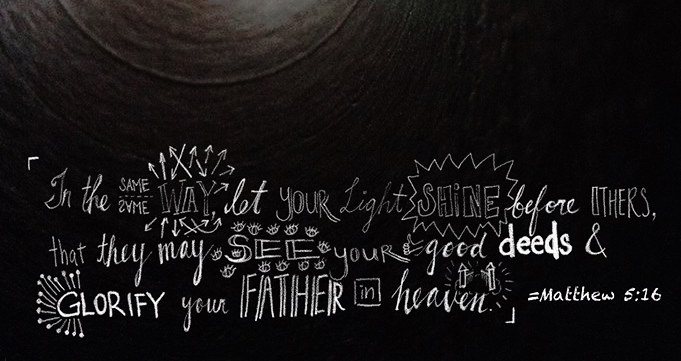 「In the SAME SAME WAY, let YOUR Light SHINE before OTHERS,
that they may SEE your good deeds &
GLORIFY your FATHER in heaven.」 =Matthew 5:16